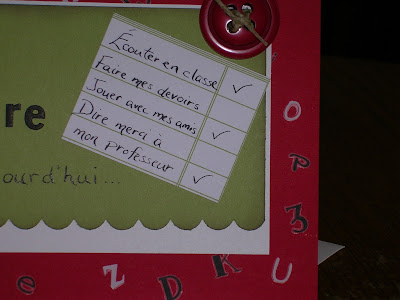 Écouter en classe ✓
Faire mes devoirs
Jouer avec mes amis ✓
Dire merci à
mon professeur ✓
re
ourd'hui...
O
P
3
U
e Z D R